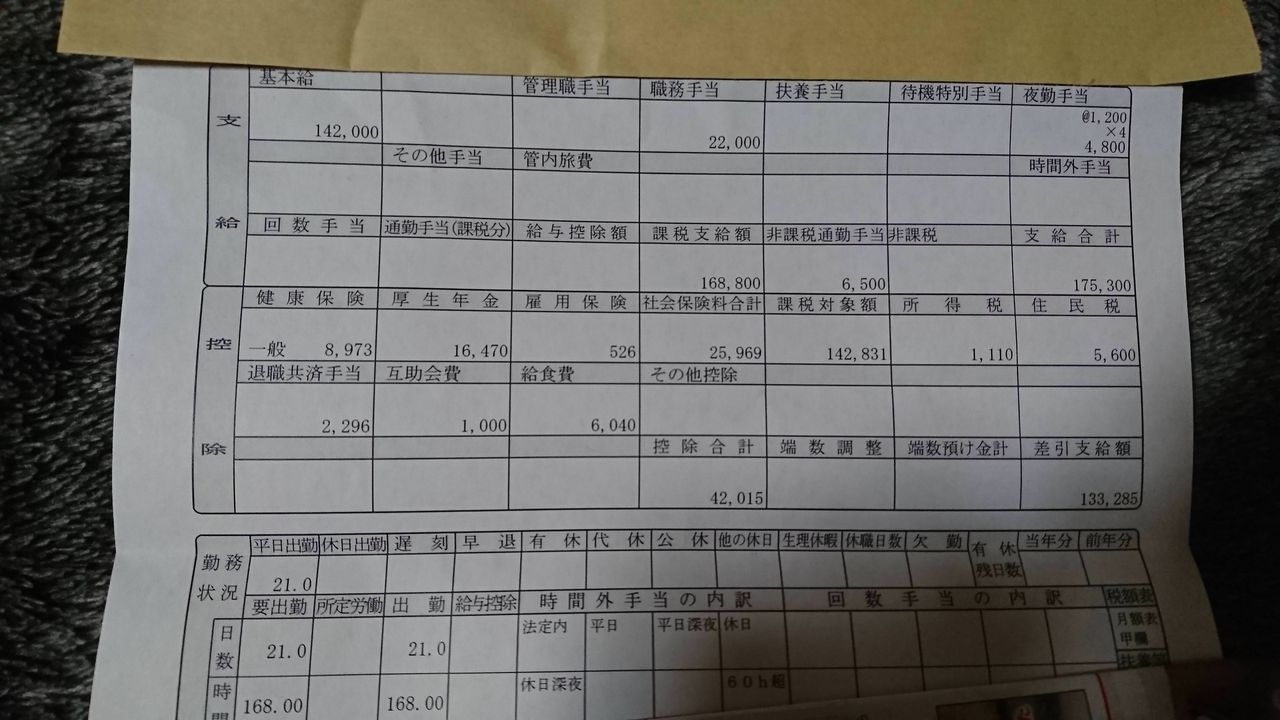 支給
基本給 管理職手当 職務手当 扶養手当 待機特別手当 夜勤手当
@1,200
×4
142,000 22,000 4,800
その他手当 管内旅費 時間外手当
回数手当 通勤手当(課税分) 給与控除額 課税支給額 非課税通勤手当 非課税 支給合計
168,800 6,500 175,300
控除
健康保険 厚生年金 雇用保険 社会保険料合計 課税対象額 所得税 住民税
一般 8,973 16,470 526 25,969 142,831 1,110 5,600
退職共済手当 互助会費 給食費 その他控除
2,296 1,000 6,040
控除合計 端数調整 端数預け金計 差引支給額
42,015 133,285
勤務状況
平日出勤 休日出勤 遅刻 早退 有休 代休 公休 他の休日 生理休暇 休職日数 欠勤 有休残日数 当年分 前年分
21.0
要出勤 所定労働 出勤 給与控除 時間外手当の内訳 回数手当の内訳 税額表
日数 21.0 21.0 法定内 平日 平日深夜 休日 月額表
甲欄
時間 168.00 168.00 休日深夜 60h超